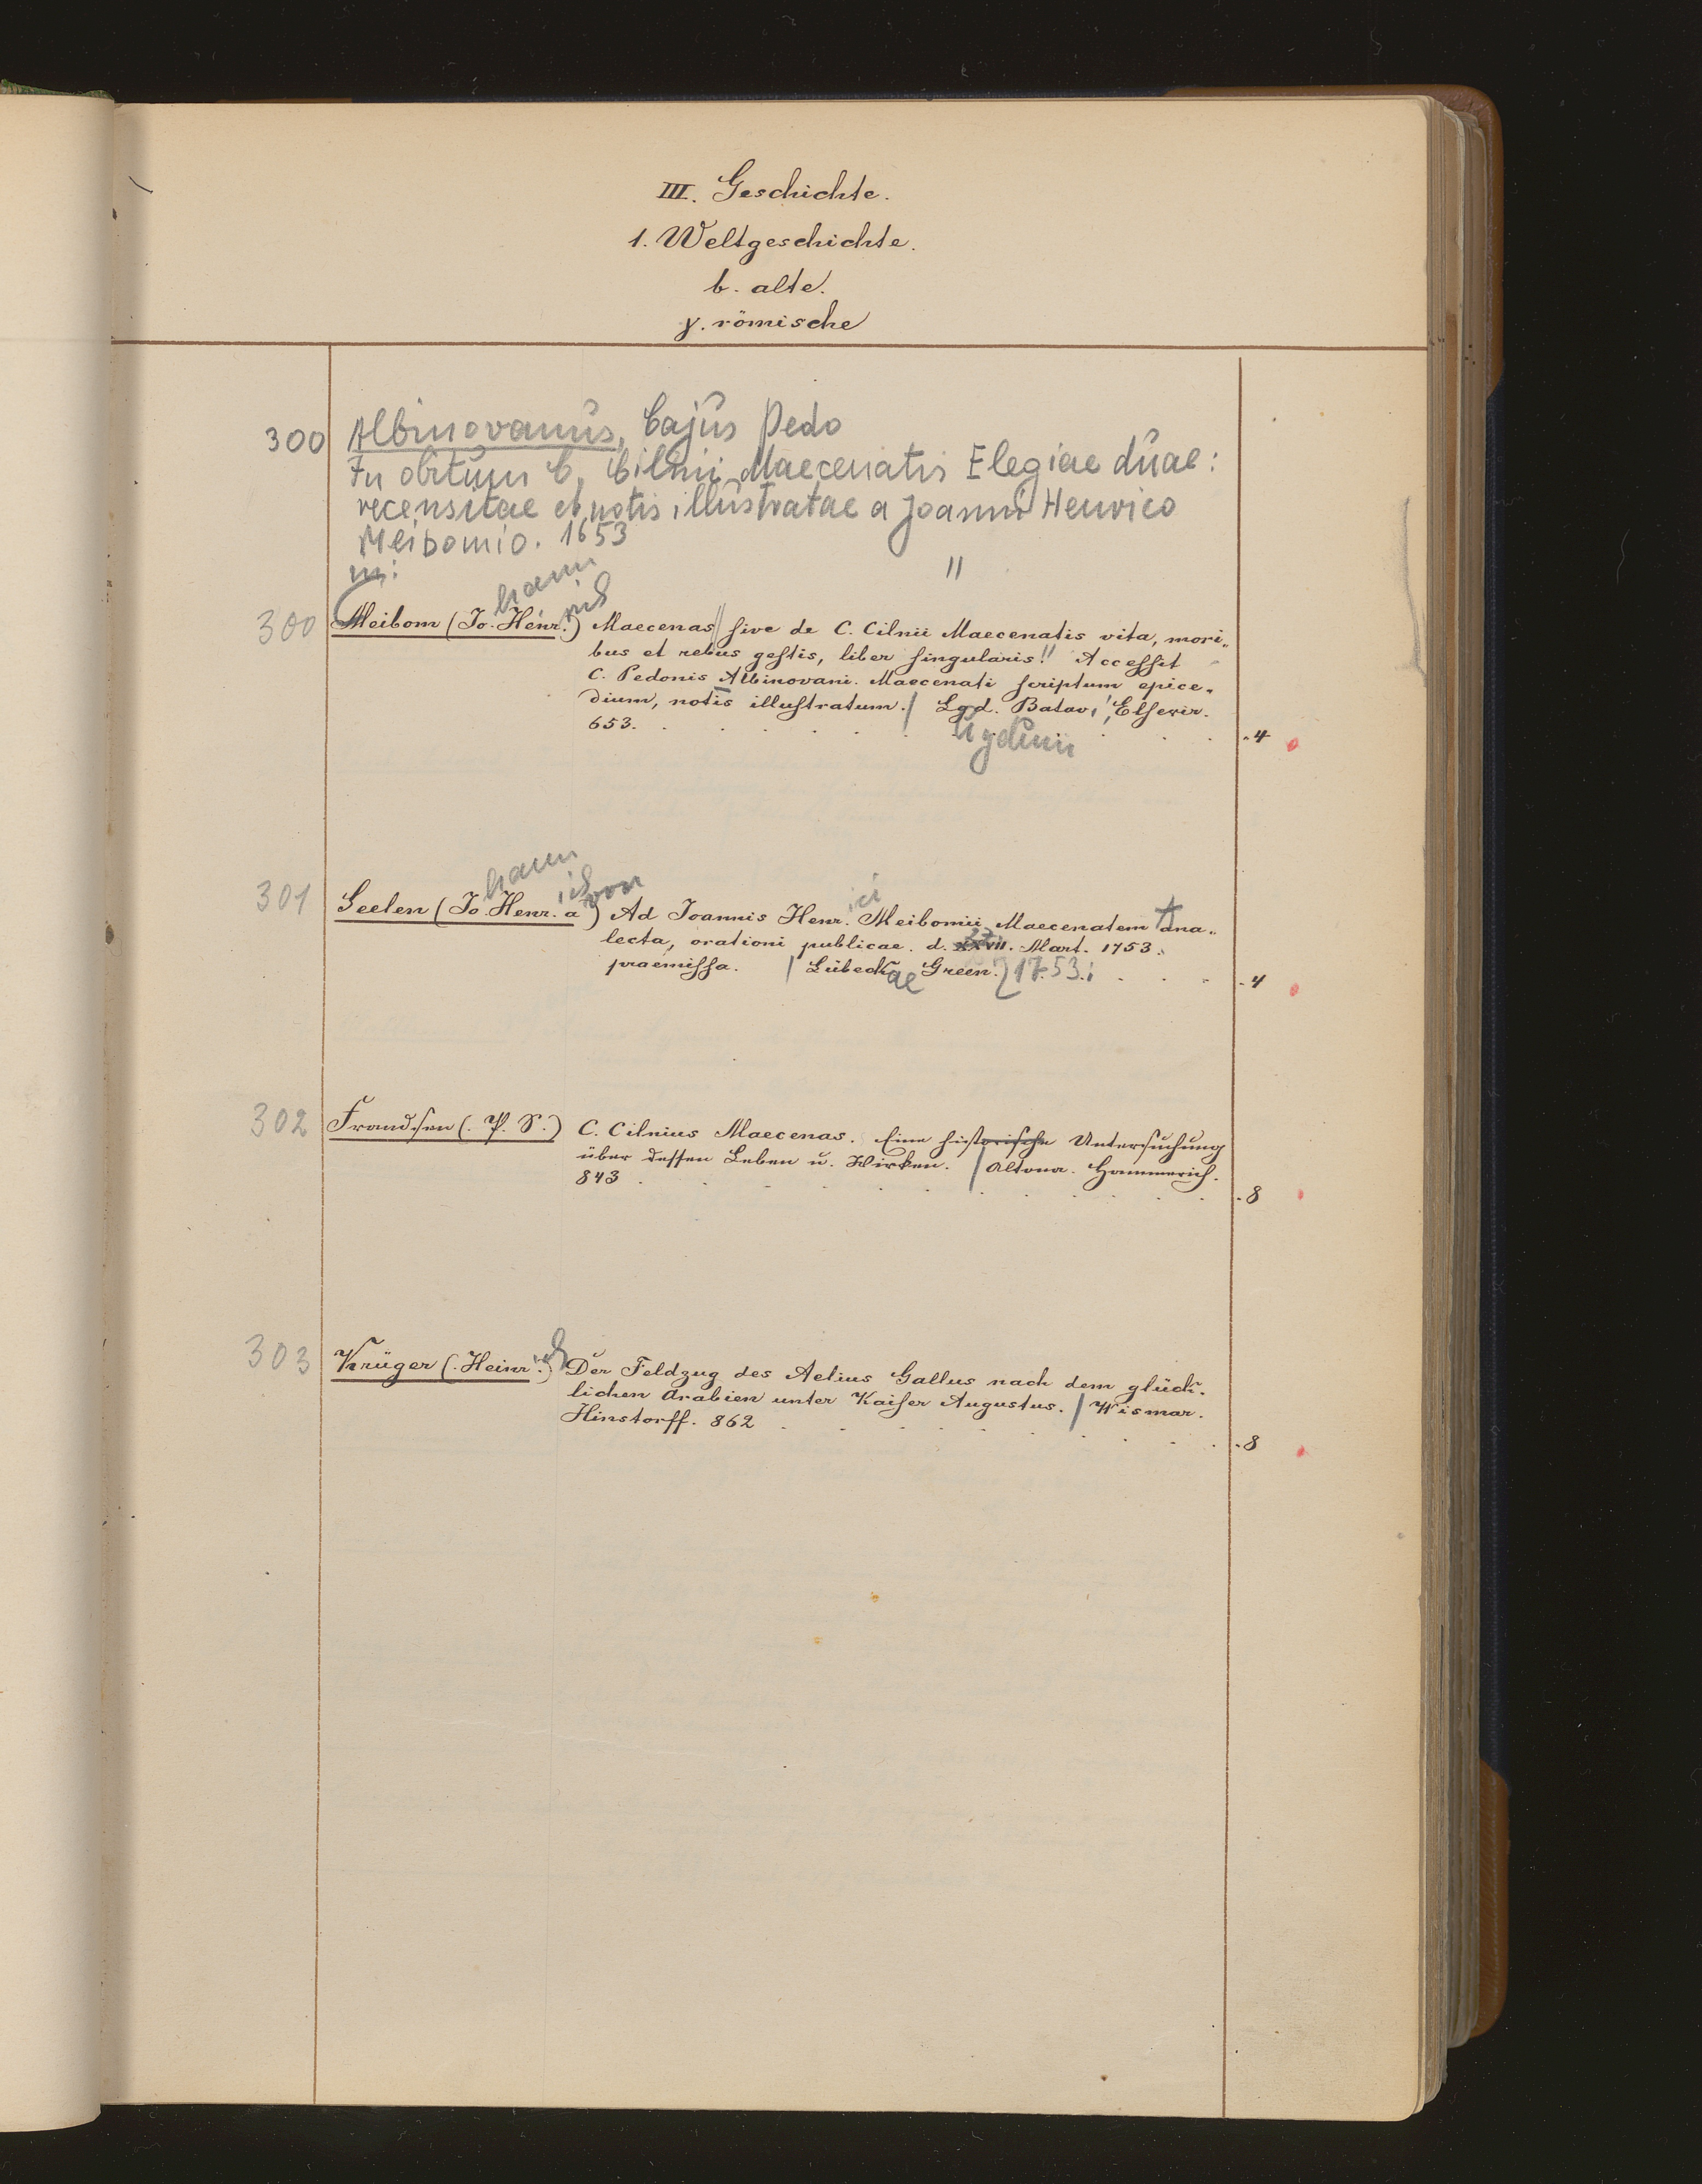 III. Geschichte.
1. Weltgeschichte.
b. alte.
γ. römische
300 Albinovanus, Cajus Pedo
In obitum C. Cilnii Maecenatis Elegiae duae:
recensitae et notis illustratae a Joanne Henrico
Meibomio. 1653
in:
hann rich
300 Meibom (Jo. Henr.) Maecenas sive de C. Cilnii Maecenatis vita, mori„
bus et rebus gestis, liber singularis!! Accessit
C. Pedonis Albinovani. Maecenati scriptum epice„
dium, notis illustratum. / Lgd. Batav., Elsevir.
653. . . . . . . . .4
ugduni
hann ich von ici
301 Seelen (Jo. Henr. a) Ad Joannis Henr. Meibomii Maecenatem ana„
lecta, orationi publicae. d. xxvii. Mart. 1753.
praemissa. / Lübeckae Green. 1753. . . . .4
302 Frandsen (. P. S.) C. Cilnius Maecenas. Eine historische Untersuchung
über dessen Leben u. Wirken. / Altona. Hammerich.
843 . . . . . . . . .8
303 Krüger (. Heinrich.) Der Feldzug des Aelius Gallus nach dem glück„
lichen Arabien unter Kaiser Augustus. / Wismar.
Hinstorff. 862 . . . . . . . .8